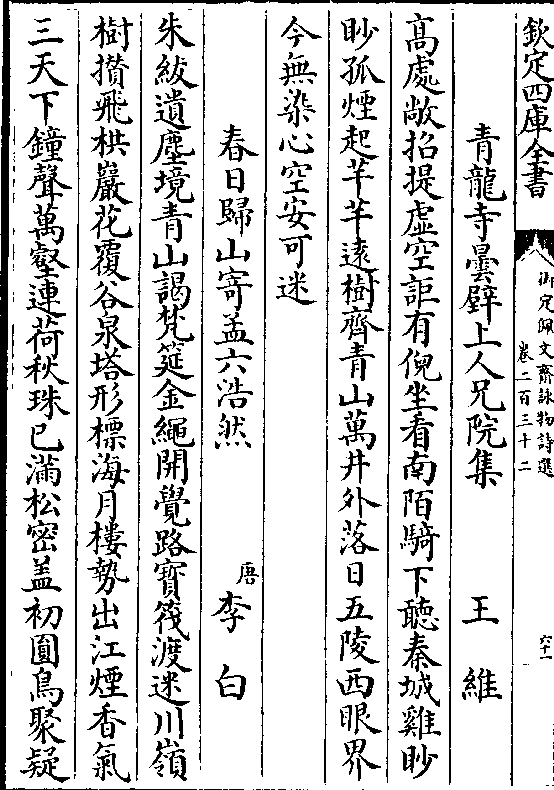 欽定四庫全書
御定佩文齋詠物詩選
卷二百三十二
六十一
青龍寺曇壁上人兄院集 王維
高處敞招提虛空詎有倪坐看南陌騎下聽秦城雞眇
眇孤煙起芊芊遠樹齊青山萬井外落日五陵西眼界
今無染心空安可迷
春日歸山寄孟六浩然 唐李白
朱紱遺塵境青山謁梵筵金繩開覺路寶筏渡迷川嶺
樹攢飛栱巖花覆谷泉塔形標海月樓勢出江煙香氣
三天下鐘聲萬壑連荷秋珠已滿松密盖初圓鳥聚疑